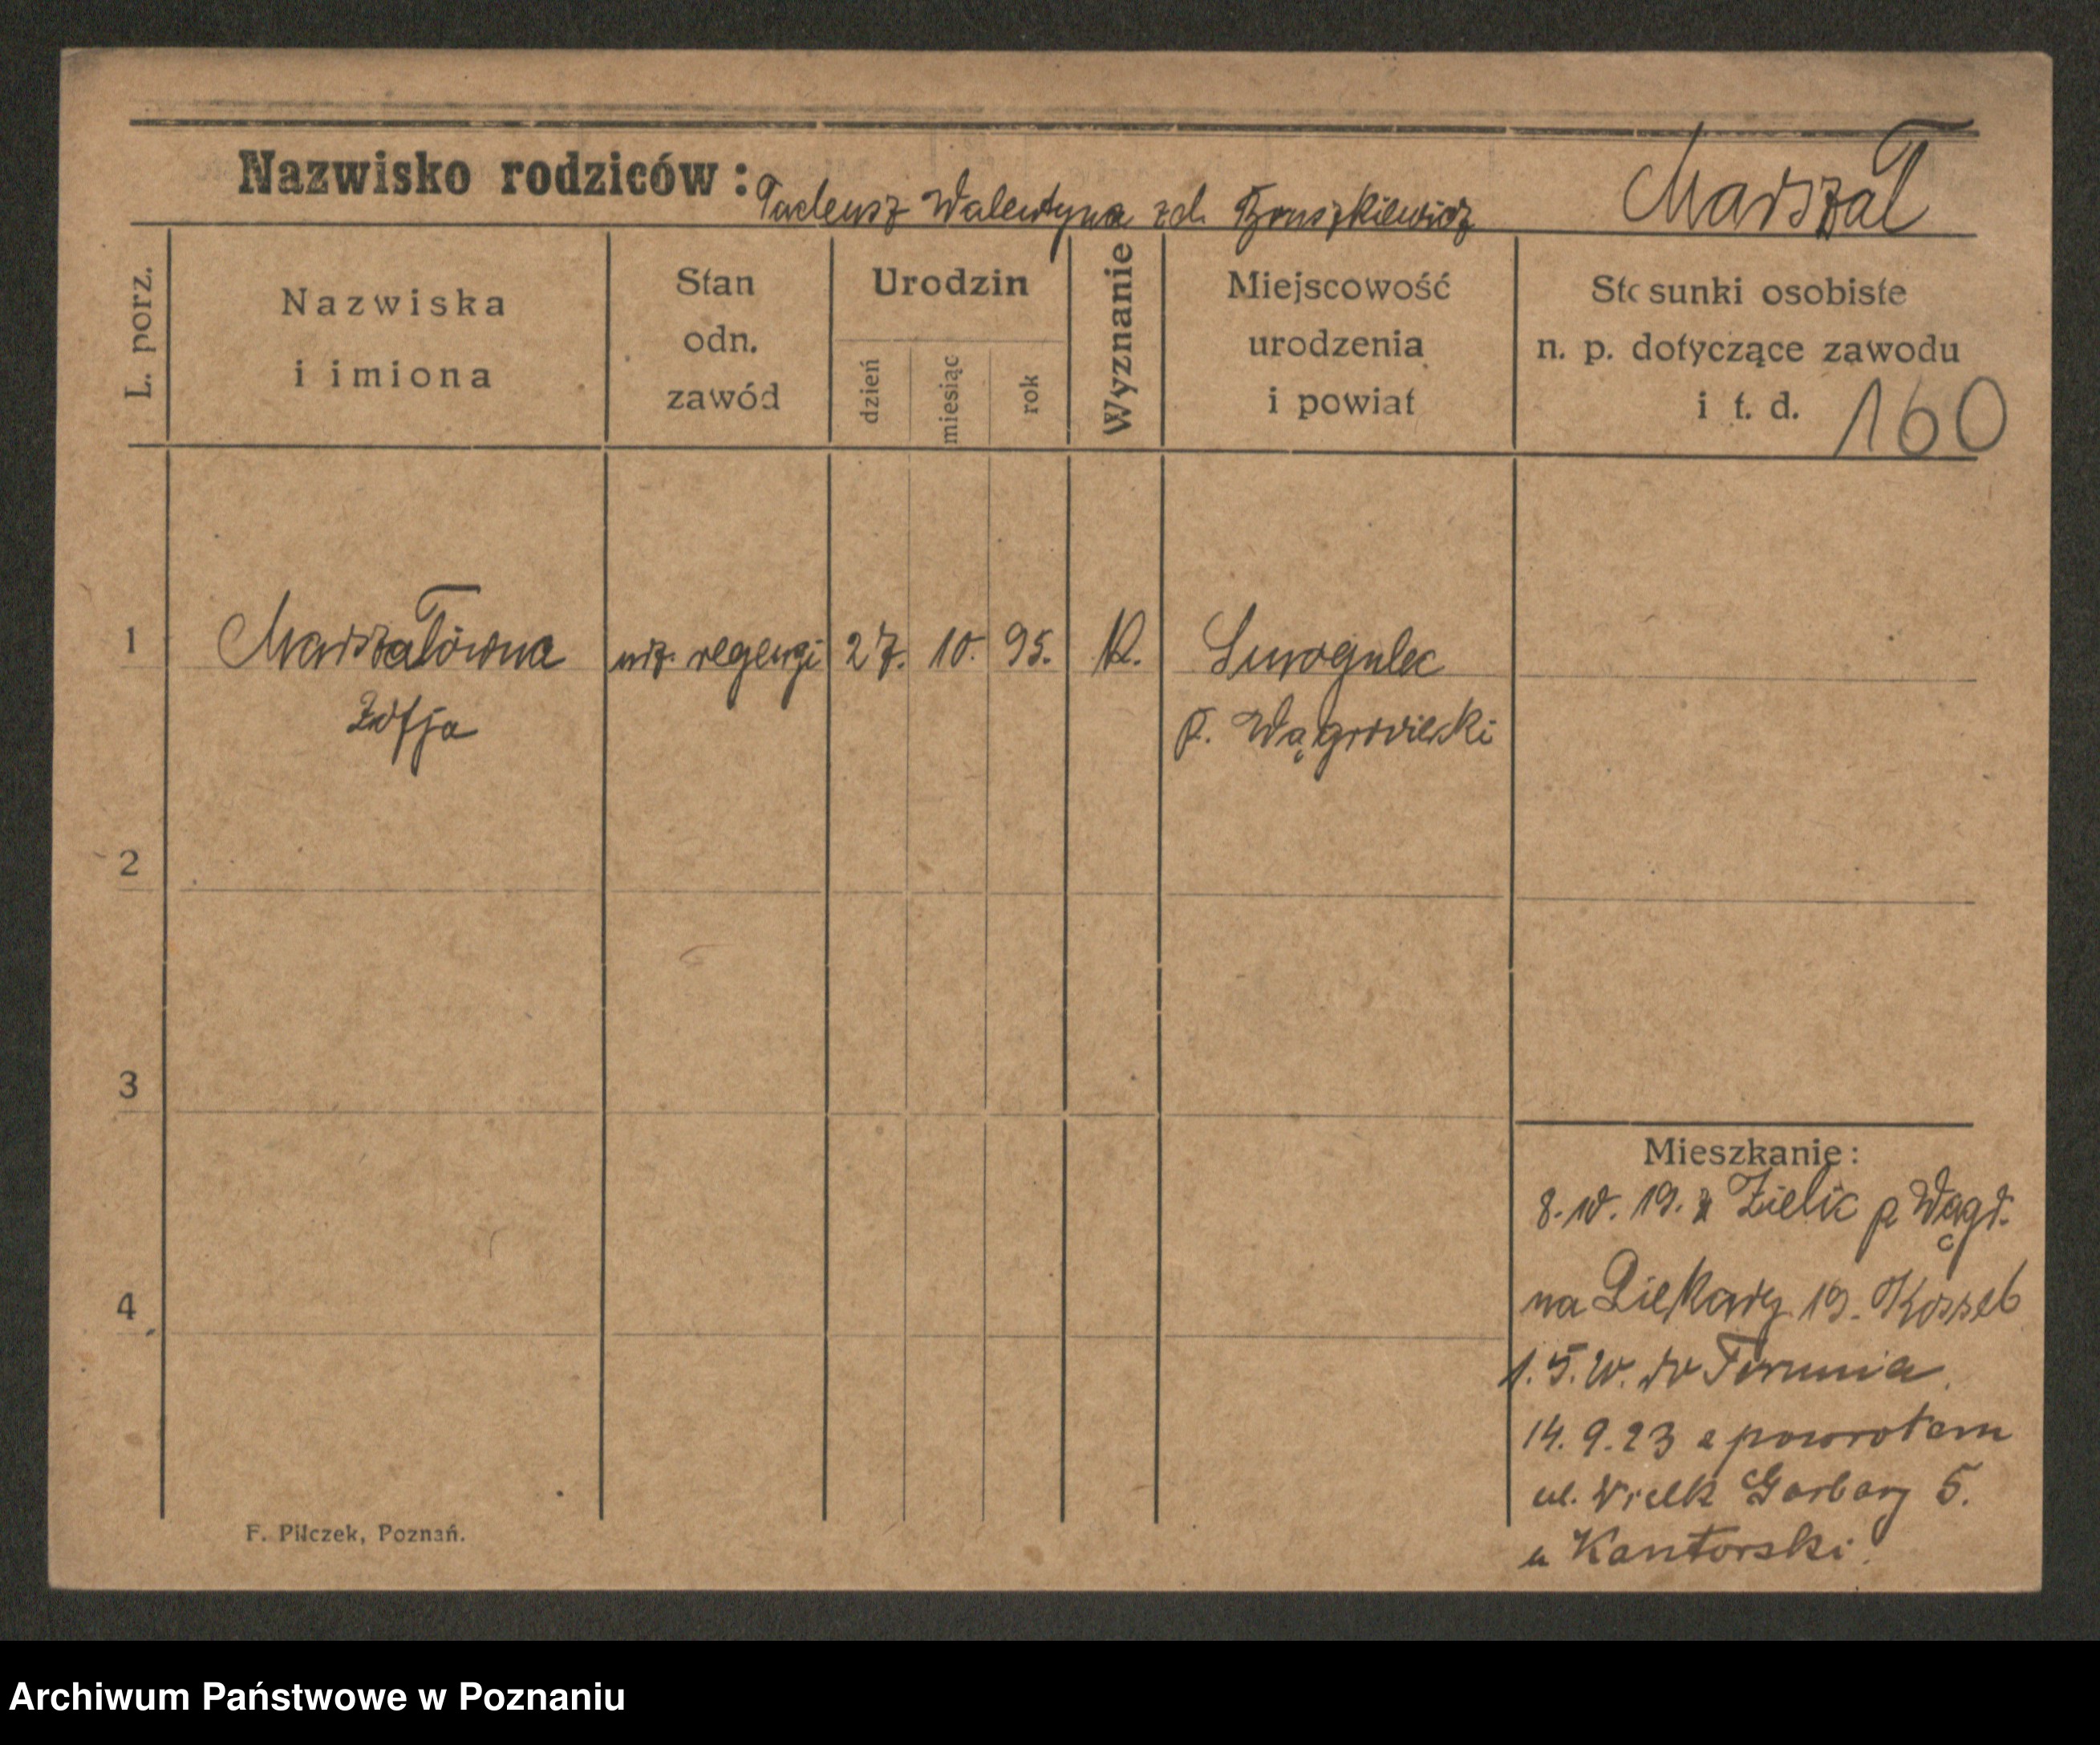 Nazwisko rodziców: Tadeusz Walentyna zd. Bruszkiewicz Marszał
L. porz.
Nazwiska
i imiona
Stan
odn.
zawód
Urodzin
dzień
miesiąc
rok
Wyznanie
Miejscowość
urodzenia
i powiat
Stosunki osobiste
n. p. dotyczące zawodu
i t. d. 160
1 Marszałówna 27. 10. 95. K. Smogulec
Zofja p. Wągrowiecki
2
3
4
Mieszkanie:
8. 10. 19. z Zielic p Wągr.
na Piekary 19.
1. 5. 20. do Torunia.
14. 9. 23 z powrotem
ul. Wielk Garbary 5.
u Kantorski.
F. Pilczek, Poznań.
Archiwum Państwowe w Poznaniu